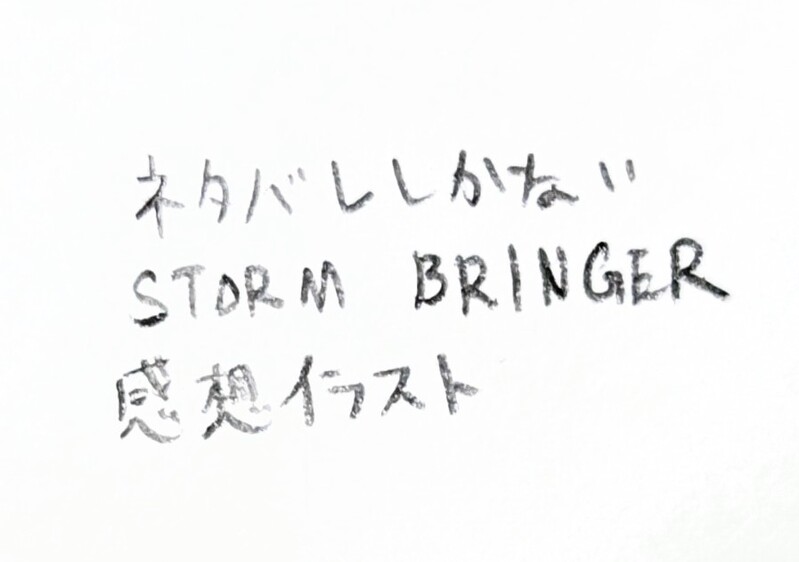 ネタバレしかない
STORM BRINGER
感想イラスト